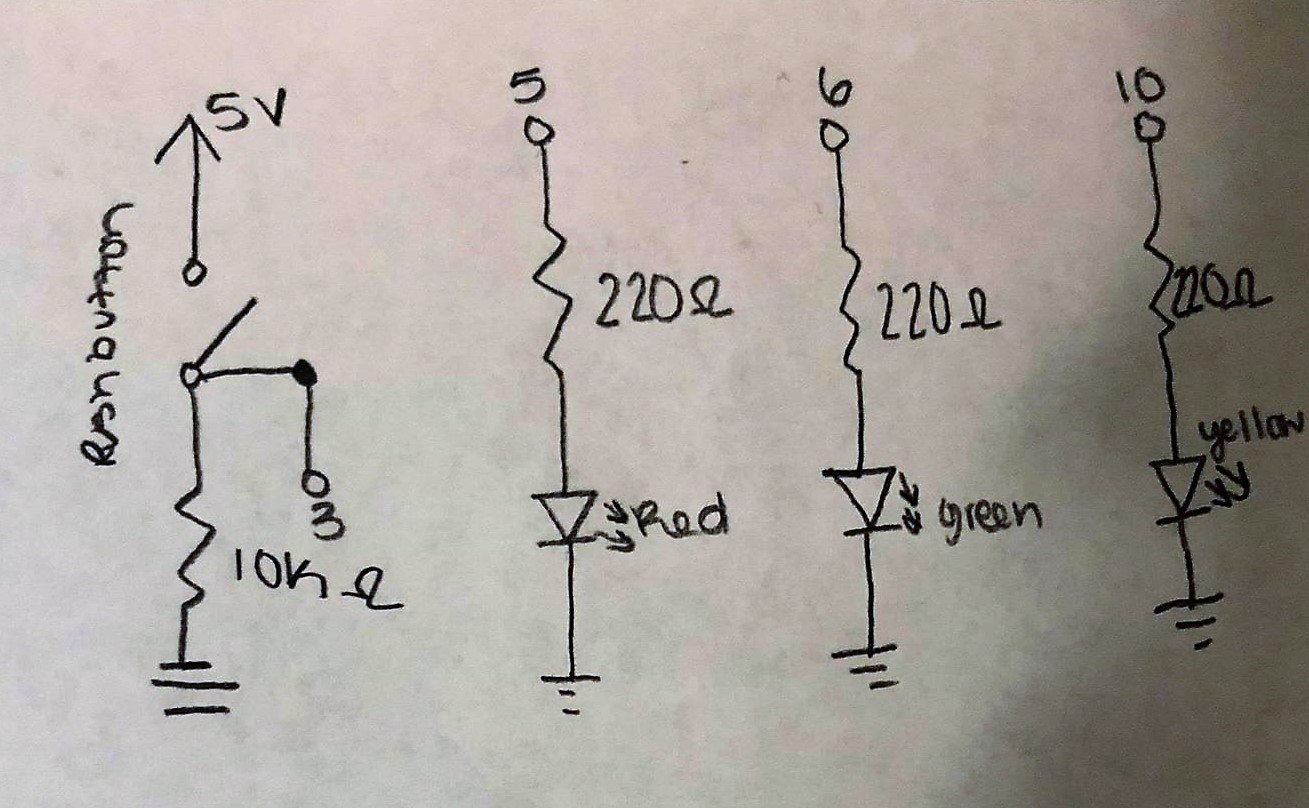 5V
Pushbutton
3
10K Ω
5
220Ω
Red
6
220Ω
green
10
220Ω
yellow